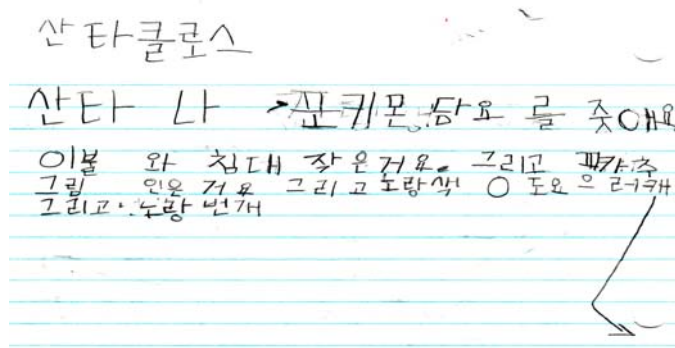 산타클로스
산타 나 포키몬 담요 를 줏애요
이불 와 침대 작은거요. 그리고 피카추
그림 인은 거요 그리고 노랑색 O 도요으
그리고 노랑 번개